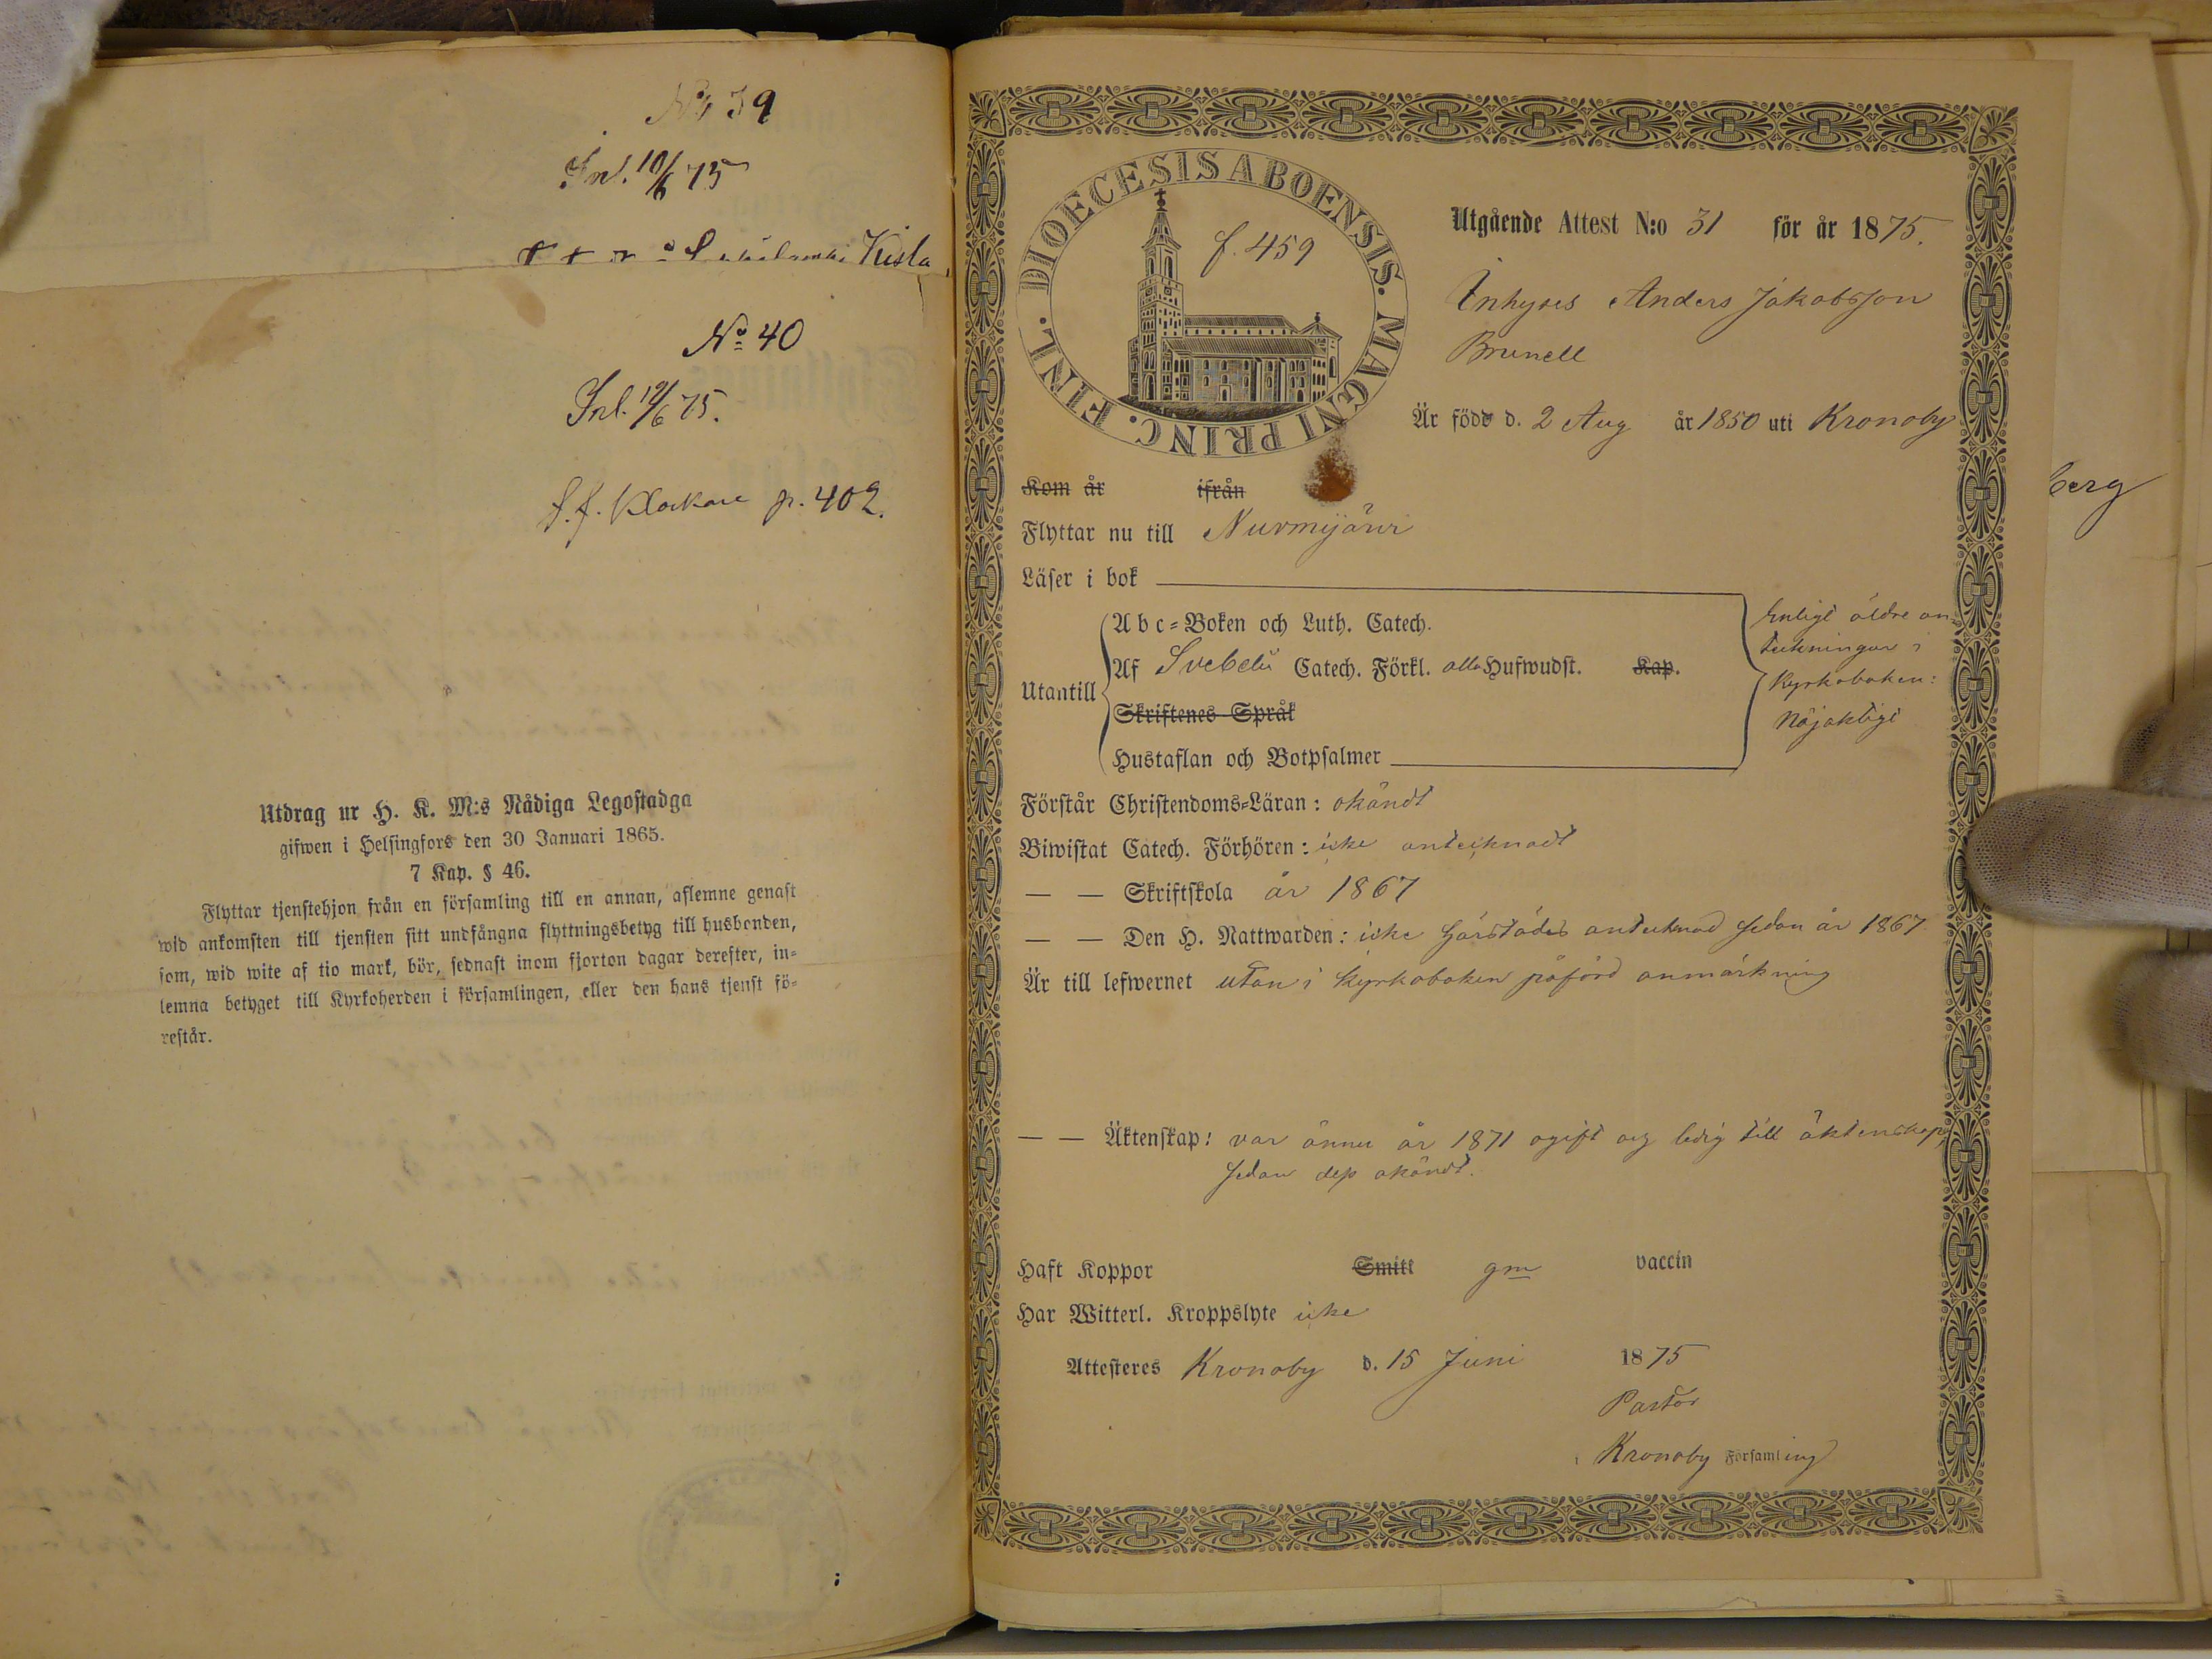 No 39
Inl. 10/6 75
Kista
No 40
Inl. 19/6 75.
S. f. Klockare p. 402.
Utdrag ur H. K. M:s Nådiga Legostadga
gifwen i Helsingfors den 30 Januari 1865.
7 Kap. § 46.
Flyttar tjenstehjon från en församling till en annan, aflemne genast
wid ankomsten till tjensten sitt undfångna flyttningsbetyg till husbonden,
som, wid wite af tio mark, bör, sednast inom fjorton dagar derefter, in-
lemna betyget till Kyrkoherden i församlingen, eller den hans tjenst fö-
restår.
DIOECESIS ABOENSIS. MAGNI PRINC. FINL.
f. 459
Utgående Attest N:o 31 för år 1875.
Inhyses Anders Jakobsson
Brunell
Är född d. 2 Aug år 1850 uti Kronoby
Kom år ifrån
Flyttar nu till Nurmijärvi
Läser i bok
Utantill
Abc-Boken och Luth. Catech.
Af Svebelii Catech. Förkl. alla Hufwudst. Kap.
Skriftenes Språk
Hustaflan och Botpsalmer
Enligt äldre an-
teckningar i
Kyrkoboken:
Nöjaktigt
Förstår Christendoms-Läran: okändt
Biwistat Catech. Förhören: icke antecknadt
— — Skriftskola år 1867
— — Den H. Nattwarden: icke härstädes antecknad sedan år 1867.
Är till lefwernet utan i kyrkoboken påförd anmärkning
— — Äktenskap: var ännu år 1871 ogift och ledig till äktenskap,
sedan dess okändt.
Haft Koppor Smitt gm vaccin
Har Witterl. Kroppslyte icke
Attesteres Kronoby d. 15 Juni 1875
Pastor
i Kronoby Församling
berg